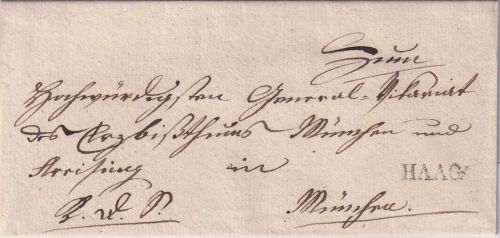 Zum
Hochwürdigsten General-Vikariat
des Erzbißthums München und
Freising in
HAAG
R. d. S. München.